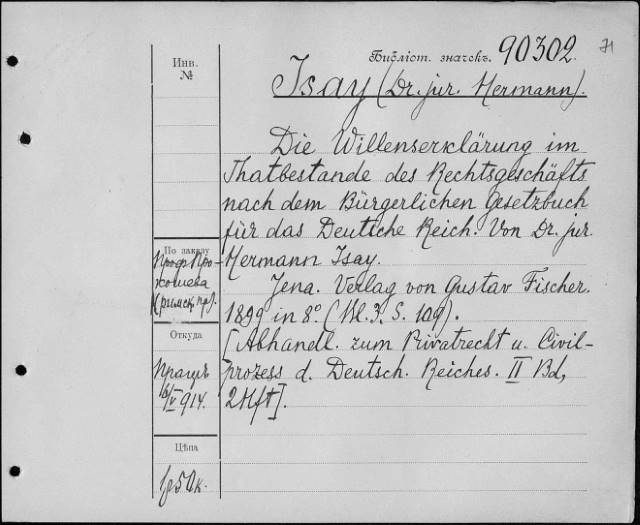 Библіот. значекъ. 90302. 71
Инв.
№
Isay (Dr. jur. Hermann).
Die Willenserklärung im
Thatbestande des Rechtsgeschäfts
nach dem Bürgerlichen Gesetzbuch
für das Deutsche Reich. Von Dr. jur.
Hermann Isay.
Jena. Verlag von Gustav Fischer.
1899 in 8º. (Bl. 3. S. 109).
[Abhandl. zum Privatrecht u. Civil-
prozess d. Deutsch. Reiches. II Bd,
2 Hft].
По заказу
Проф. Про-
кошева
(римск. пр).
Откуда
Прагеръ
V 914.
Цѣна
50 к.